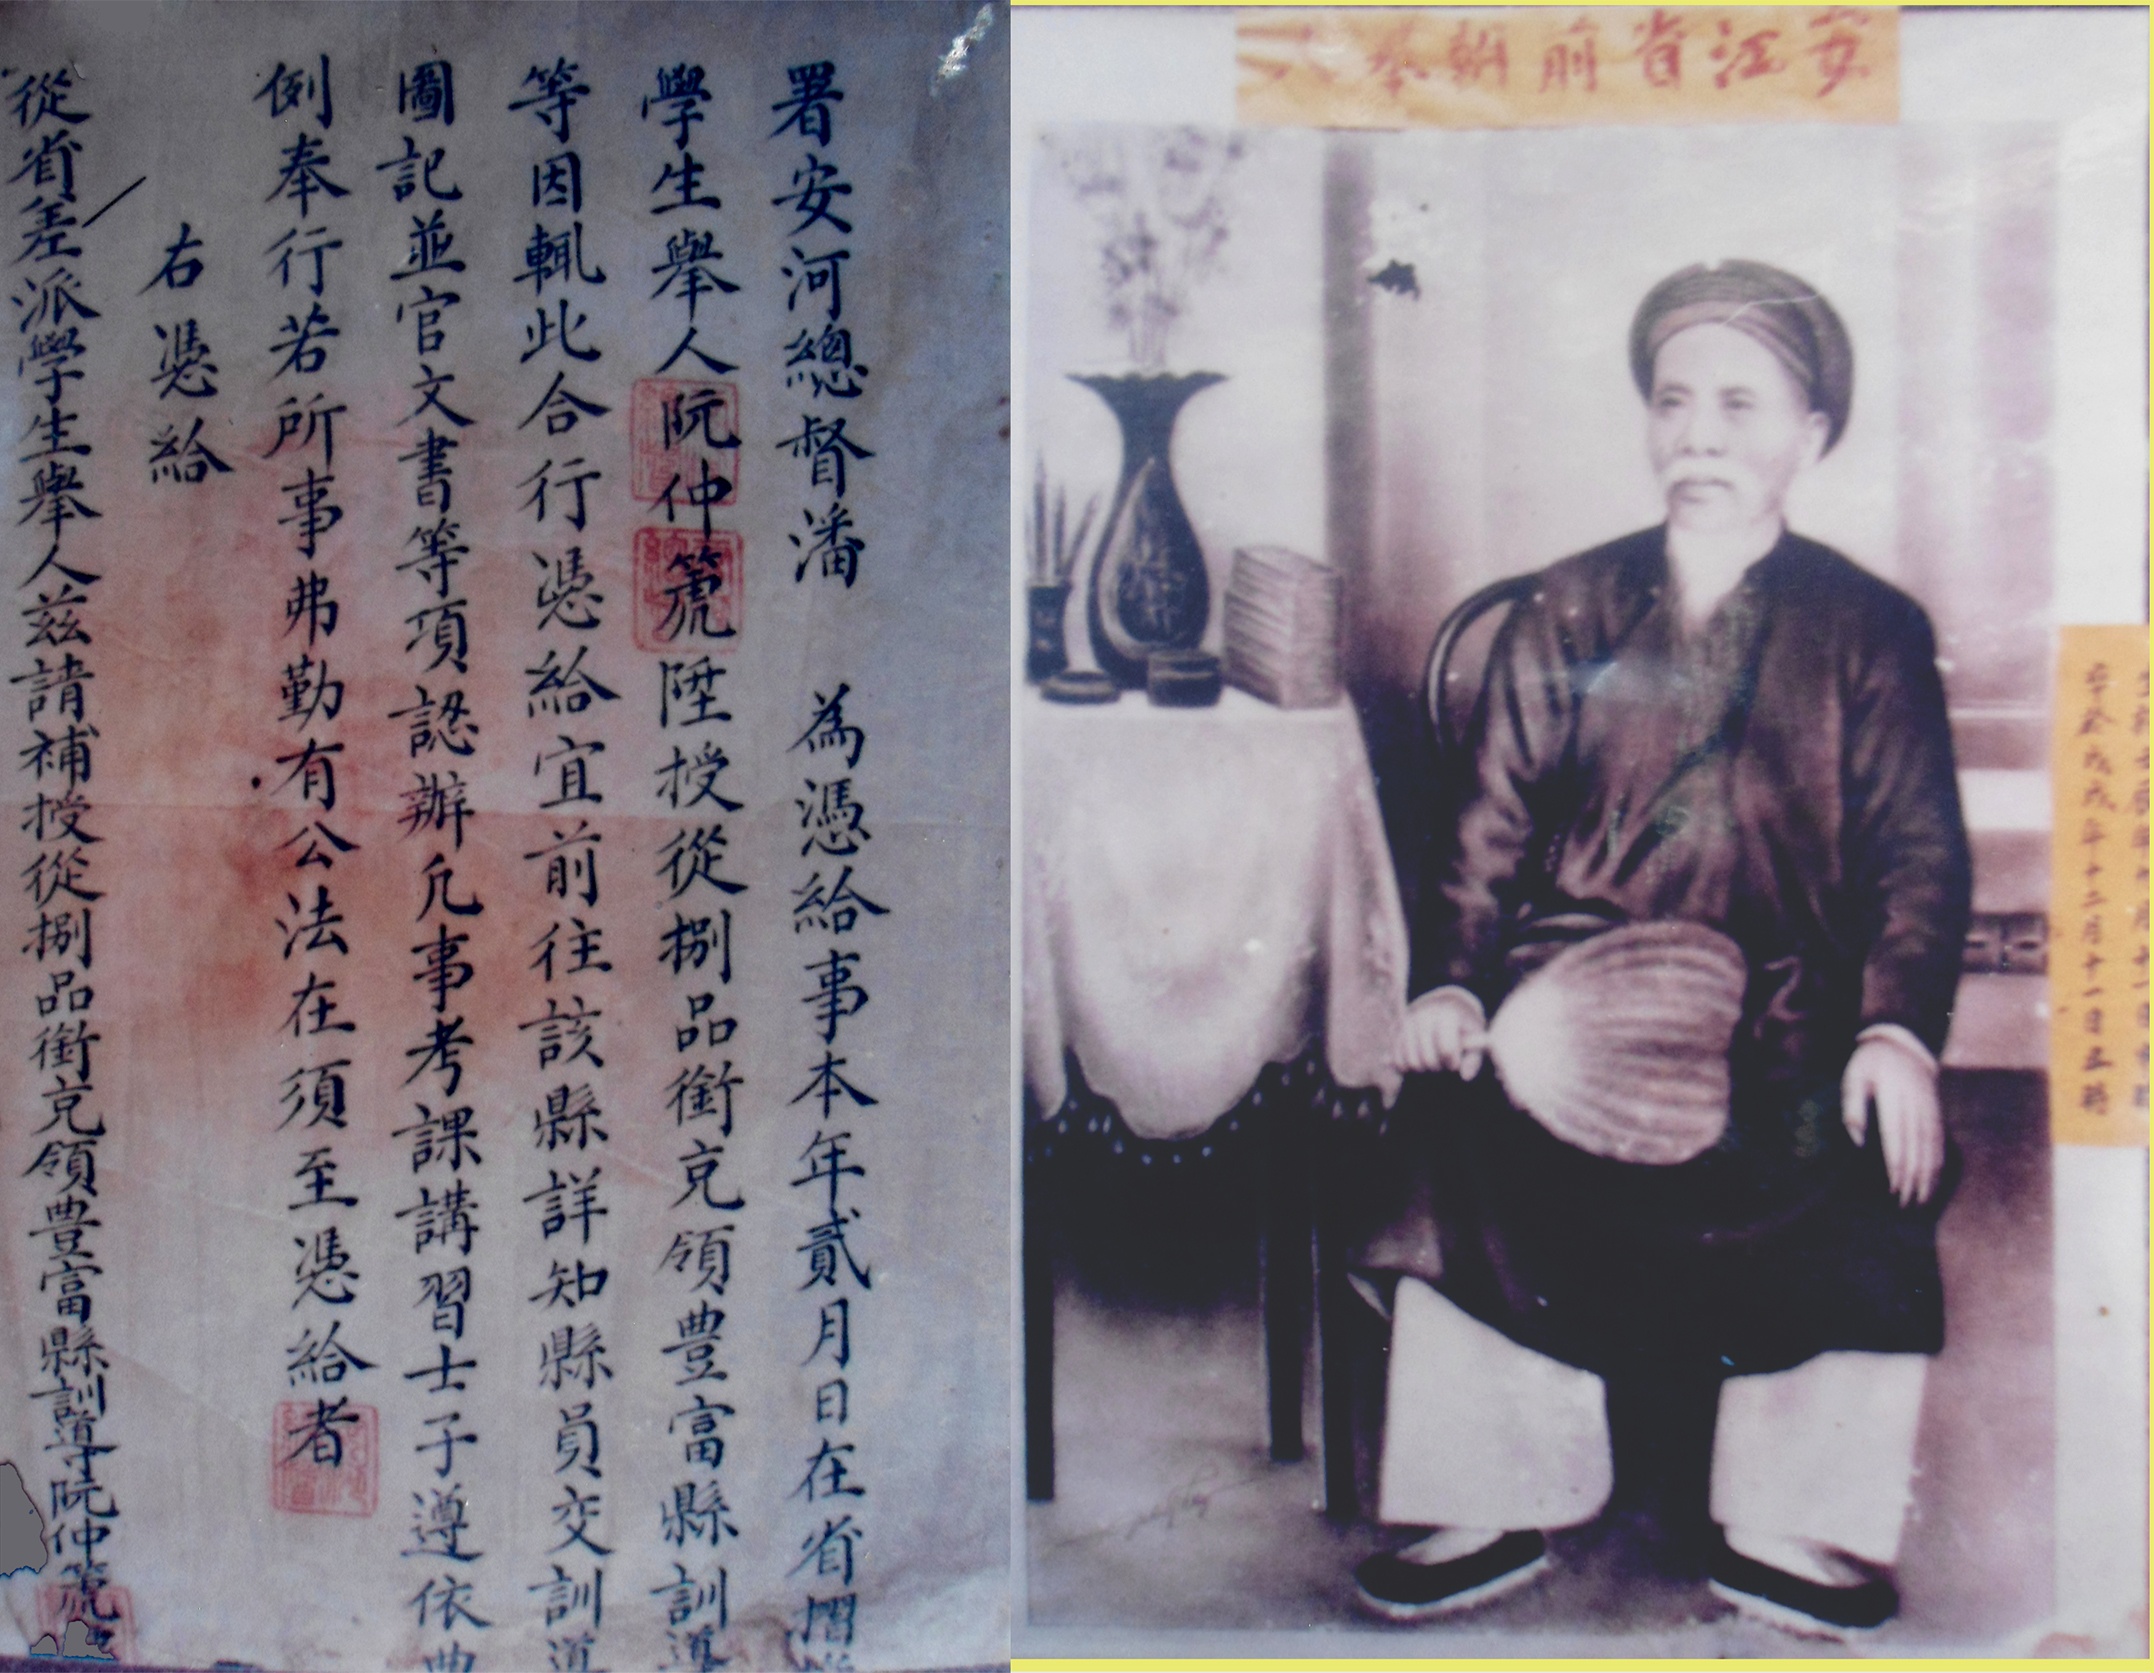 署安河總督潘　為憑給事本年貳月日在省摺
學生舉人阮仲箎陞授從捌品銜充領豊富縣訓導
等因輒此合行憑給宜前往該縣詳知縣員交訓導
圖記並官文書等項認辦凡事考課講習士子遵依典
例奉行若所事弗勤有公法在須至憑給者
右憑給
從省差派學生舉人茲請補授從捌品銜充領豊富縣訓導阮仲箎
江省前
卒於戊戌年十二月十一日丑時